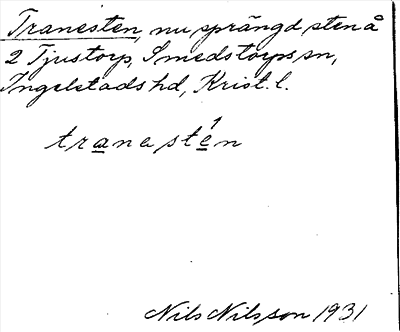 Tranesten, nu sprängd sten å
2 Tjustorp, Smedstorps sn,
Ingelstads hd, Krist. l.
tranestén
Nils Nilsson 1931